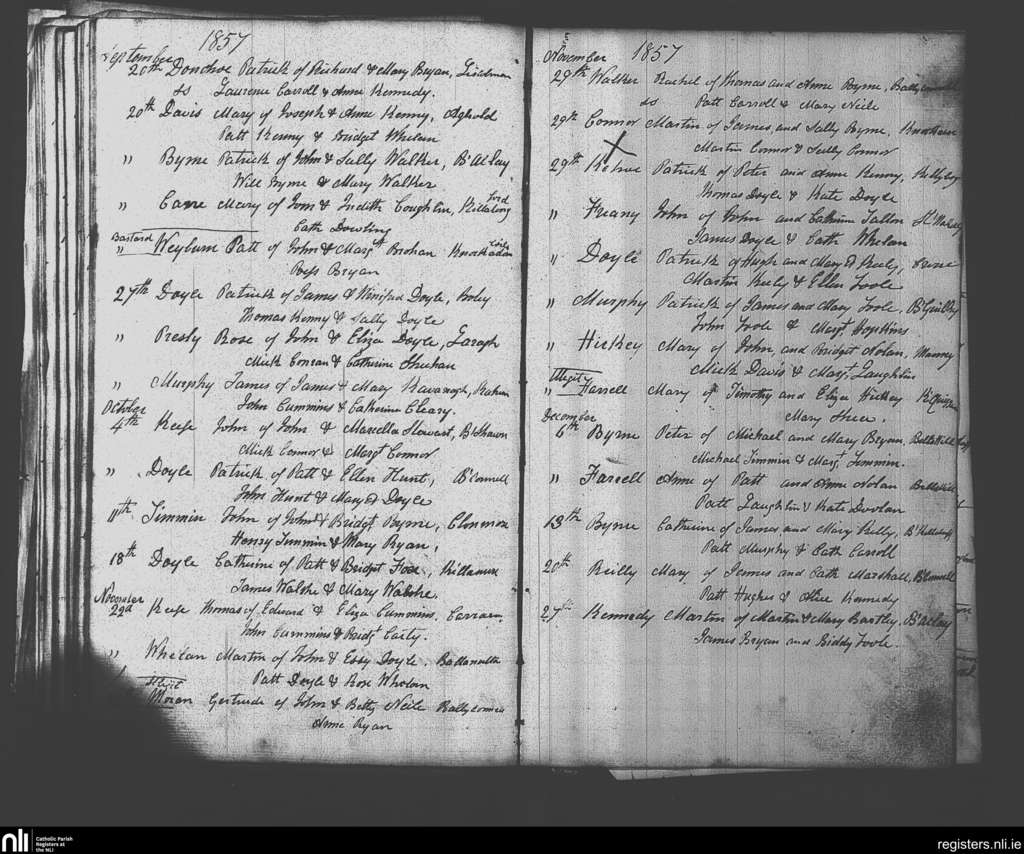 1857
September
20th Donohoe Patrick of Richard & Mary Bryan, Liscolman
ds Laurence Carroll & Anne Kennedy.
20th Davis Mary of Joseph & Anne Kenny, Aghold
Patt Kenny & Bridget Whelan
" Byrne Patrick of John & Sally Walker, B'aclay
Will Byrne & Mary Walker
" Carre Mary of John & Judith Coughlin, Killalong
Cath Dowling
Bastard
" Weyburn Patt of John & Margt Brohan
Bess Bryan
27th Doyle Patrick of James & Winifred Doyle,
Thomas Kenny & Sally Doyle
" Presly Rose of John & Eliza Doyle,
Mick Conran & Catherine Sheehan
" Murphy James of James & Mary Kavanagh,
John Cummins & Catherine Cleary.
October
4th Keefe John of John & Marcella Stewart,
Mick Connor & Margt Connor
" Doyle Patrick of Patt & Ellen Hunt, B'Connell
John Hunt & Mary A Doyle
11th Timmin John of John & Bridgt Byrne, Clonmore
Henry Timmin & Mary Ryan,
18th Doyle Catherine of Patt & Bridget
James Walshe & Mary Walshe.
November
22d Keefe Thomas of Edward & Eliza Cummins,
John Cummins & Bridgt Early.
" Whelan Martin of John & Essy Doyle,
Patt Doyle & Rose Whelan
Illegit
Moran Gertrude of John & Betty Neile Ballyconnell
Anne Ryan
November 1857
29th Walker Rachel of Thomas and Anne Byrne, Ballyconnell
ds Patt Carroll & Mary Neile
29th Connor Martin of James, and Sally Byrne,
Martin Connor & Sally Connor
29th Kehoe Patrick of Peter and Anne Kenny,
Thomas Doyle & Kate Doyle
" Feeany John of John and Catherine Tallon
James Doyle & Cath Whelan
" Doyle Patrick of Hugh and Mary A Keely,
Martin Keely & Ellen Toole
" Murphy Patrick of James and Mary Toole,
John Toole & Margt Hopkins
" Hickey Mary of John, and Bridget Nolan,
Mick Davis & Margt Laughlin
Illegity
" Farrell Mary of Timothy and Eliza Hickey
Mary Shea.
December
6th Byrne Peter of Michael and Mary Byrne,
Michael Timmin & Margt Timmin.
" Farrell Anne of Patt and Anne Nolan
Patt Laughlin & Kate Devlan
13th Byrne Catherine of James, and Mary Kelly,
Patt Murphy & Cath Carroll
20th Reilly Mary of James and Cath Marshall, B'Connell
Patt Hughes & Alice Kennedy
27th Kennedy Martin of Martin & Mary Bartley, B'aclay
James Bryan and Biddy Toole.
nli Catholic Parish Registers at the NLI
registers.nli.ie